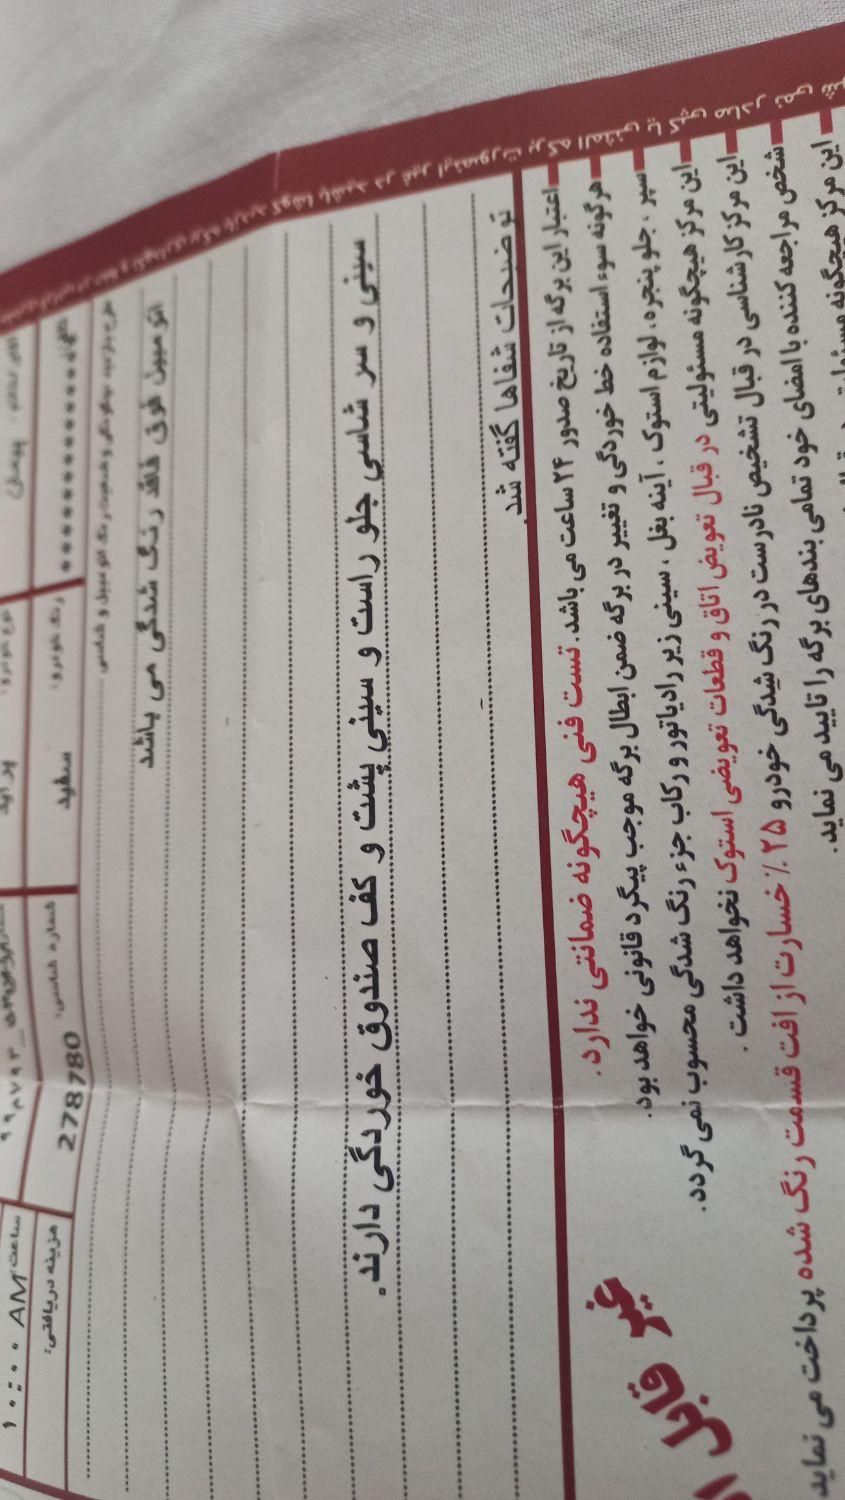 پراید
ساعت: ۱۰:۰۰ AM
رنگ خودرو: سفید
شماره شاسی: 278780
هزینه دریافتی:
اتومبیل فوق فاقد رنگ شدگی می باشد
سینی و سر شاسی جلو راست و سینی پشت و کف صندوق خوردگی دارند.
توضیحات شفاها گفته شد.
اعتبار این برگه از تاریخ صدور ۲۴ ساعت می باشد. تست فنی هیچگونه ضمانتی ندارد.
هرگونه سوء استفاده خط خوردگی و تغییر در برگه ضمن ابطال برگه موجب پیگرد قانونی خواهد بود.
سپر ، جلو پنجره، لوازم استوک ، آینه بغل ، سینی زیر رادیاتور و رکاب جزء رنگ شدگی محسوب نمی گردد.
این مرکز هیچگونه مسئولیتی در قبال تعویض اتاق و قطعات تعویضی استوک نخواهد داشت .
این مرکز کارشناسی در قبال تشخیص نادرست در رنگ شدگی خودرو ۲۵٪ خسارت از افت قسمت رنگ شده پرداخت می نماید
شخص مراجعه کننده با امضای خود تمامی بندهای برگه را تایید می نماید.
این مرکز هیچگونه
غیر قابل